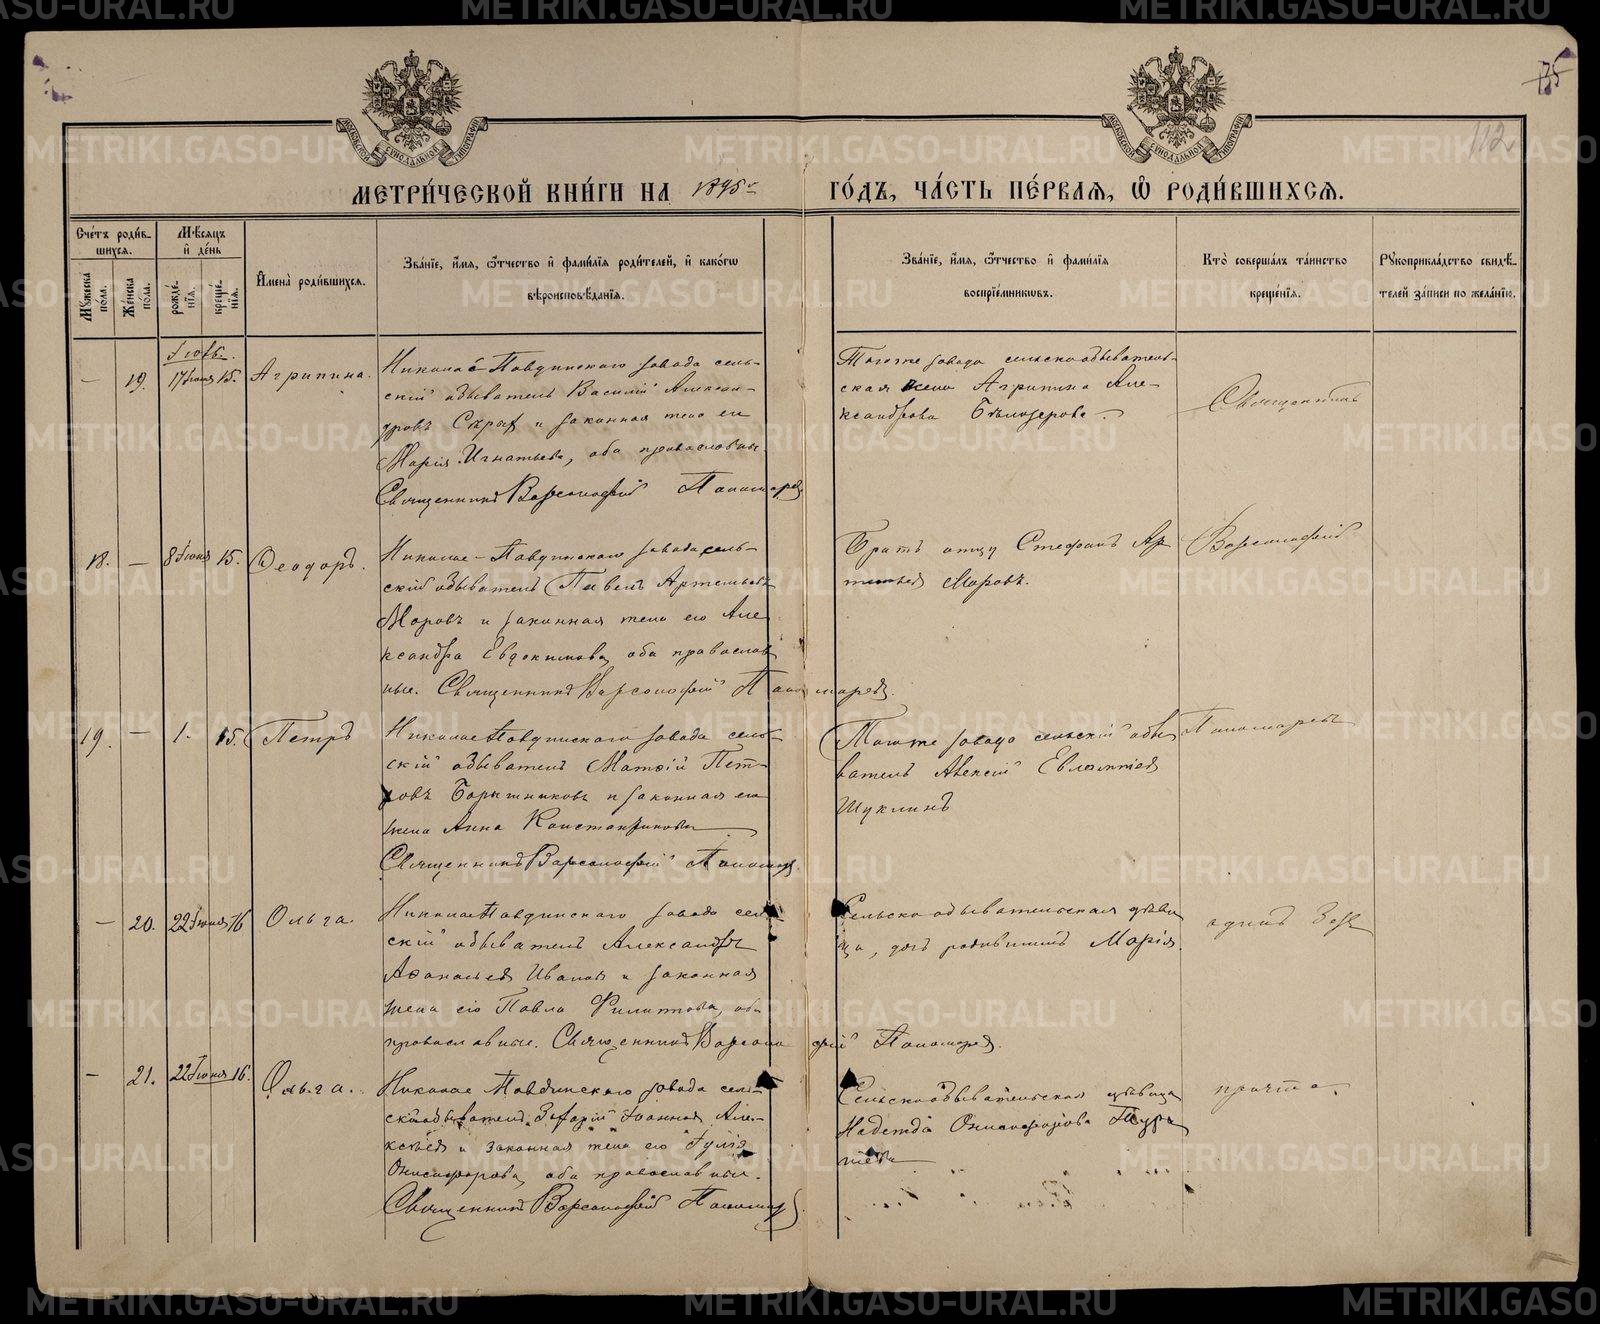 135
112
МОСКОВСКОЙ СѴНОДАЛЬНОЙ ТИПОГРАФІИ
МОСКОВСКОЙ СѴНОДАЛЬНОЙ ТИПОГРАФІИ
МЕТРИ́ЧЕСКОЙ КНИ́ГИ НА 1895 ГО́ДЪ, ЧА́СТЬ ПЕ́РВАЯ, Ѡ РОДИ́ВШИХСЯ.
Сче́тъ роди́в-
шихся.
Мѣ́сяцъ
и҆ де́нь
Мꙋ́жеска пола.
Же́нска пола.
рожде́нїя.
креще́нїя.
И҆мена̀ роди́вшихся.
Зва́нїе, и҆́мя, ѻ҆́тчество и҆ фами́лїя роди́телей, и҆ како́гѡ
вѣроисповѣ́данїя.
Зва́нїе, и҆́мя, ѻ҆́тчество и҆ фами́лїя
воспрїе́мникѡвъ.
Кто̀ соверша́лъ та́инство
креще́нїя.
Рꙋкоприкла́дство свидѣ́-
телей за́писи по жела́нїю.
— 19. 17 Іюня 15. Агрипина.
Николае-Павдинскаго завода сель-
скій обыватель Василій Александ-
ровъ и законная жена его
Марія Игнатьева, оба православные
Священникъ Варсонофій Пономарев
Тогоже завода сельскообыватель-
ская жена Агрипина Але-
ксандрова Бѣлозерова.
Священникъ
18. — 8 Іюня 15. Ѳеодоръ.
Николае-Павдинскаго завода сель-
скій обыватель Павелъ Артемьевъ
Моровъ и законная жена его Але
ксандра Евдокимова, оба православ
ные. Священникъ Варсонофій Пономаревъ.
Братъ отцу Стефанъ Ар
темьев Моровъ.
Варсонофій
19. — 1. 15. Петръ
Николае Павдинскаго завода сель-
скій обыватель Матѳій Пет-
ровъ Барышниковъ и законная его
жена Анна Константинова
Священникъ Варсонофій Пономарев
Тогоже завода сельскій обы
ватель Алексій Евлампіев
Шуклинъ
Пономаревъ
— 20. 22 Іюня 16 Ольга.
Николае Павдинскаго завода сель
скій обыватель Александръ
Аѳанасьев Иванов и законная
жена его Павла Филиппова, оба
православные. Священникъ Варсонофій Пономарев.
Сельско обывательская дѣви
ца, дочь родившихъ Марія.
одинъ безъ
— 21. 22 Іюня 16. Ольга.
Николае Павдинскаго завода сель
скій обыватель Захарій Іоаннов Але-
ксѣев и законная жена его Іулія
Онисифорова, оба православные.
Священникъ Варсонофій Пономарев
Сельскообывательская дѣвица
Надежда Онисифорова
причта.